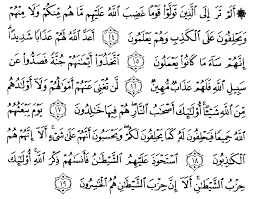 ۞ أَلَمْ تَرَ إِلَى ٱلَّذِينَ تَوَلَّوْا۟ قَوْمًا غَضِبَ ٱللَّهُ عَلَيْهِم مَّا هُم مِّنكُمْ وَلَا مِنْهُمْ
وَيَحْلِفُونَ عَلَى ٱلْكَذِبِ وَهُمْ يَعْلَمُونَ ١٤ أَعَدَّ ٱللَّهُ لَهُمْ عَذَابًا شَدِيدًا
إِنَّهُمْ سَآءَ مَا كَانُوا۟ يَعْمَلُونَ ١٥ ٱتَّخَذُوٓا۟ أَيْمَٰنَهُمْ جُنَّةً فَصَدُّوا۟ عَن
سَبِيلِ ٱللَّهِ فَلَهُمْ عَذَابٌ مُّهِينٌ ١٦ لَّن تُغْنِىَ عَنْهُمْ أَمْوَٰلُهُمْ وَلَآ أَوْلَٰدُهُم
مِّنَ ٱللَّهِ شَيْـًٔا أُو۟لَٰٓئِكَ أَصْحَٰبُ ٱلنَّارِ هُمْ فِيهَا خَٰلِدُونَ ١٧ يَوْمَ يَبْعَثُهُمُ
ٱللَّهُ جَمِيعًا فَيَحْلِفُونَ لَهُۥ كَمَا يَحْلِفُونَ لَكُمْ وَيَحْسَبُونَ أَنَّهُمْ عَلَىٰ شَىْءٍ أَلَآ إِنَّهُمْ هُمُ
ٱلْكَٰذِبُونَ ١٨ ٱسْتَحْوَذَ عَلَيْهِمُ ٱلشَّيْطَٰنُ فَأَنسَىٰهُمْ ذِكْرَ ٱللَّهِ أُو۟لَٰٓئِكَ
حِزْبُ ٱلشَّيْطَٰنِ أَلَآ إِنَّ حِزْبَ ٱلشَّيْطَٰنِ هُمُ ٱلْخَٰسِرُونَ ١٩